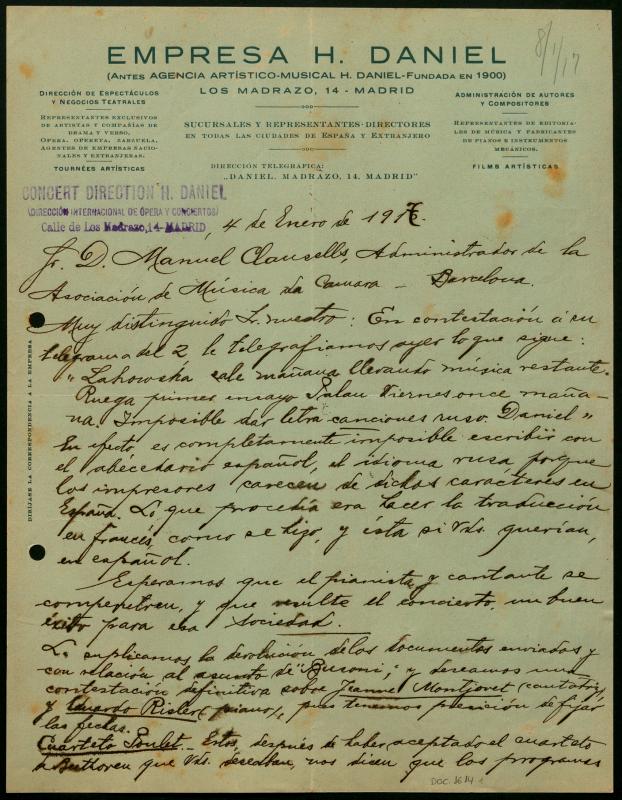 8/1/17
EMPRESA H. DANIEL
(ANTES AGENCIA ARTÍSTICO-MUSICAL H. DANIEL-FUNDADA EN 1900)
LOS MADRAZO, 14 - MADRID
DIRECCIÓN DE ESPECTÁCULOS
Y NEGOCIOS TEATRALES
REPRESENTANTES EXCLUSIVOS
DE ARTISTAS Y COMPAÑÍAS DE
DRAMA Y VERSO,
OPERA, OPERETA, ZARZUELA,
AGENTES DE EMPRESAS NACIO-
NALES Y EXTRANJERAS.
TOURNÉES ARTÍSTICAS
SUCURSALES Y REPRESENTANTES-DIRECTORES
EN TODAS LAS CIUDADES DE ESPAÑA Y EXTRANJERO
DIRECCIÓN TELEGRÁFICA:
„DANIEL. MADRAZO, 14. MADRID"
ADMINISTRACIÓN DE AUTORES
Y COMPOSITORES
REPRESENTANTES DE EDITORIA-
LES DE MÚSICA Y FABRICANTES
DE PIANOS E INSTRUMENTOS
MECÁNICOS.
FILMS ARTÍSTICAS
CONCERT DIRECTION H. DANIEL
(DIRECCIÓN INTERNACIONAL DE OPERA Y CONCIERTOS)
Calle de Los Madrazo, 14-MADRID
, 4 de Enero de 1917.
Sr. D. Manuel Clausells, Administrador de la
Asociación de Música da Camara — Barcelona.
Muy distinguido Sr. nuestro: En contestación á su
telegrama del 2, le telegrafiamos ayer lo que sigue:
"Lahowska sale mañana llevando música restante.
Ruega primer ensayo Palau Viernes once maña-
na. Imposible dar letra canciones ruso. Daniel"
En efecto, es completamente imposible escribir con
el abecedario español, el idioma rusa porque
los impresores carecen de dichos carácteres en
España. Lo que procedía era hacer la traducción
en francés, como se hizo, y ésta si Vds. querían,
en español.
Esperamos que el pianista y cantante se
compenetren, y que resulte el concierto, un buen
éxito para esa Sociedad.
Le suplicamos la devolución de los documentos enviados y
con relación al asunto de "Busoni", y deseamos una
contestación definitiva sobre Jeanne Montjovet (cantatriz)
y Eduardo Risler (piano), pues tenemos precisión de fijar
las fechas.
Cuarteto Poulet.- Estos, después de haber aceptado el cuarteto
de Bethoven que Vds. deseaban, nos dicen que los programas
DIRÍJASE LA CORRESPONDENCIA A LA EMPRESA
DOC. 1614